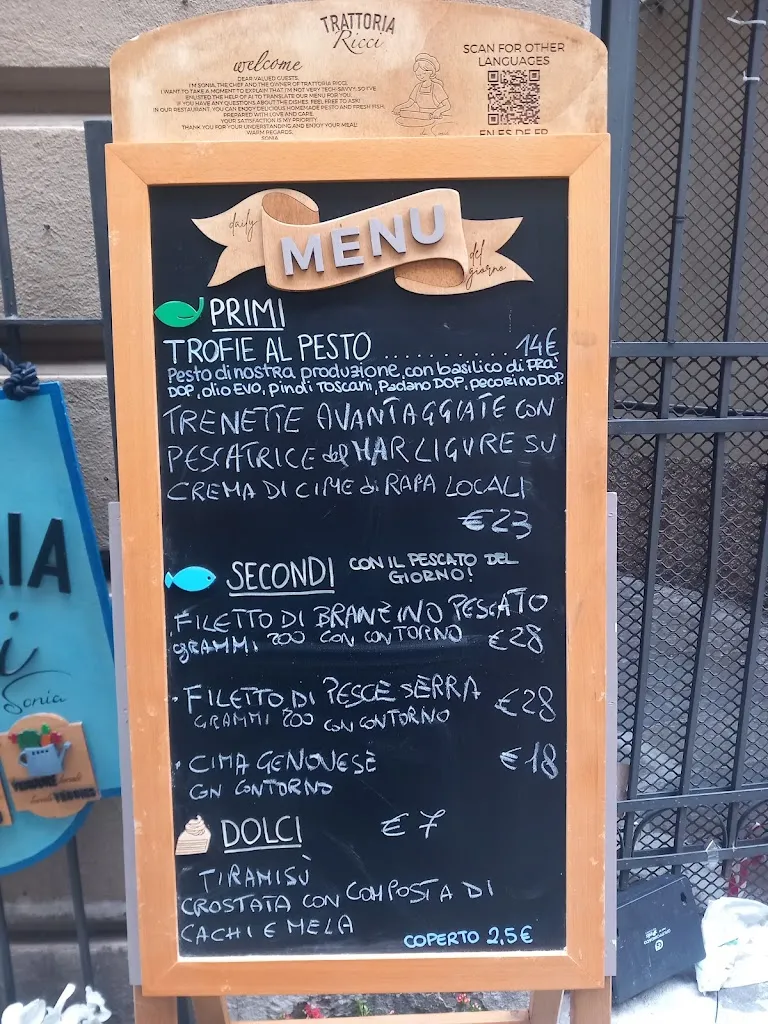 TRATTORIA
Ricci
welcome
DEAR VALUED GUESTS,
I'M SONIA, THE CHEF AND THE OWNER OF TRATTORIA RICCI.
I WANT TO TAKE A MOMENT TO EXPLAIN THAT I'M NOT VERY TECH-SAVVY, SO I'VE
ENLISTED THE HELP OF AI TO TRANSLATE OUR MENU FOR YOU.
IF YOU HAVE ANY QUESTIONS ABOUT THE DISHES, FEEL FREE TO ASK!
IN OUR RESTAURANT, YOU CAN ENJOY DELICIOUS HOMEMADE PESTO AND FRESH FISH,
PREPARED WITH LOVE AND CARE.
YOUR SATISFACTION IS MY PRIORITY.
THANK YOU FOR YOUR UNDERSTANDING AND ENJOY YOUR MEAL!
WARM REGARDS,
SONIA
SCAN FOR OTHER
LANGUAGES
EN ES DE FR
daily
MENU
del
giorno
PRIMI
TROFIE AL PESTO .............. 14€
Pesto di nostra produzione, con basilico di PRA'
DOP, olio EVO, pinoli Toscani, Padano DOP, pecorino DOP
TRENETTE AVANTAGGIATE CON
PESCATRICE del MAR LIGURE SU
CREMA DI CIME di RAPA LOCALI
€23
SECONDI CON IL PESCATO DEL
GIORNO!
FILETTO DI BRANZINO PESCATO
GRAMMI 200 CON CONTORNO €28
· FILETTO DI PESCE SERRA €28
GRAMMI 200 CON CONTORNO
· CIMA GENOVESE €18
CON CONTORNO
DOLCI € 7
TIRAMISÙ
CROSTATA CON COMPOSTA DI
CACHI E MELA
COPERTO 2,5€
IA
i
Sonia